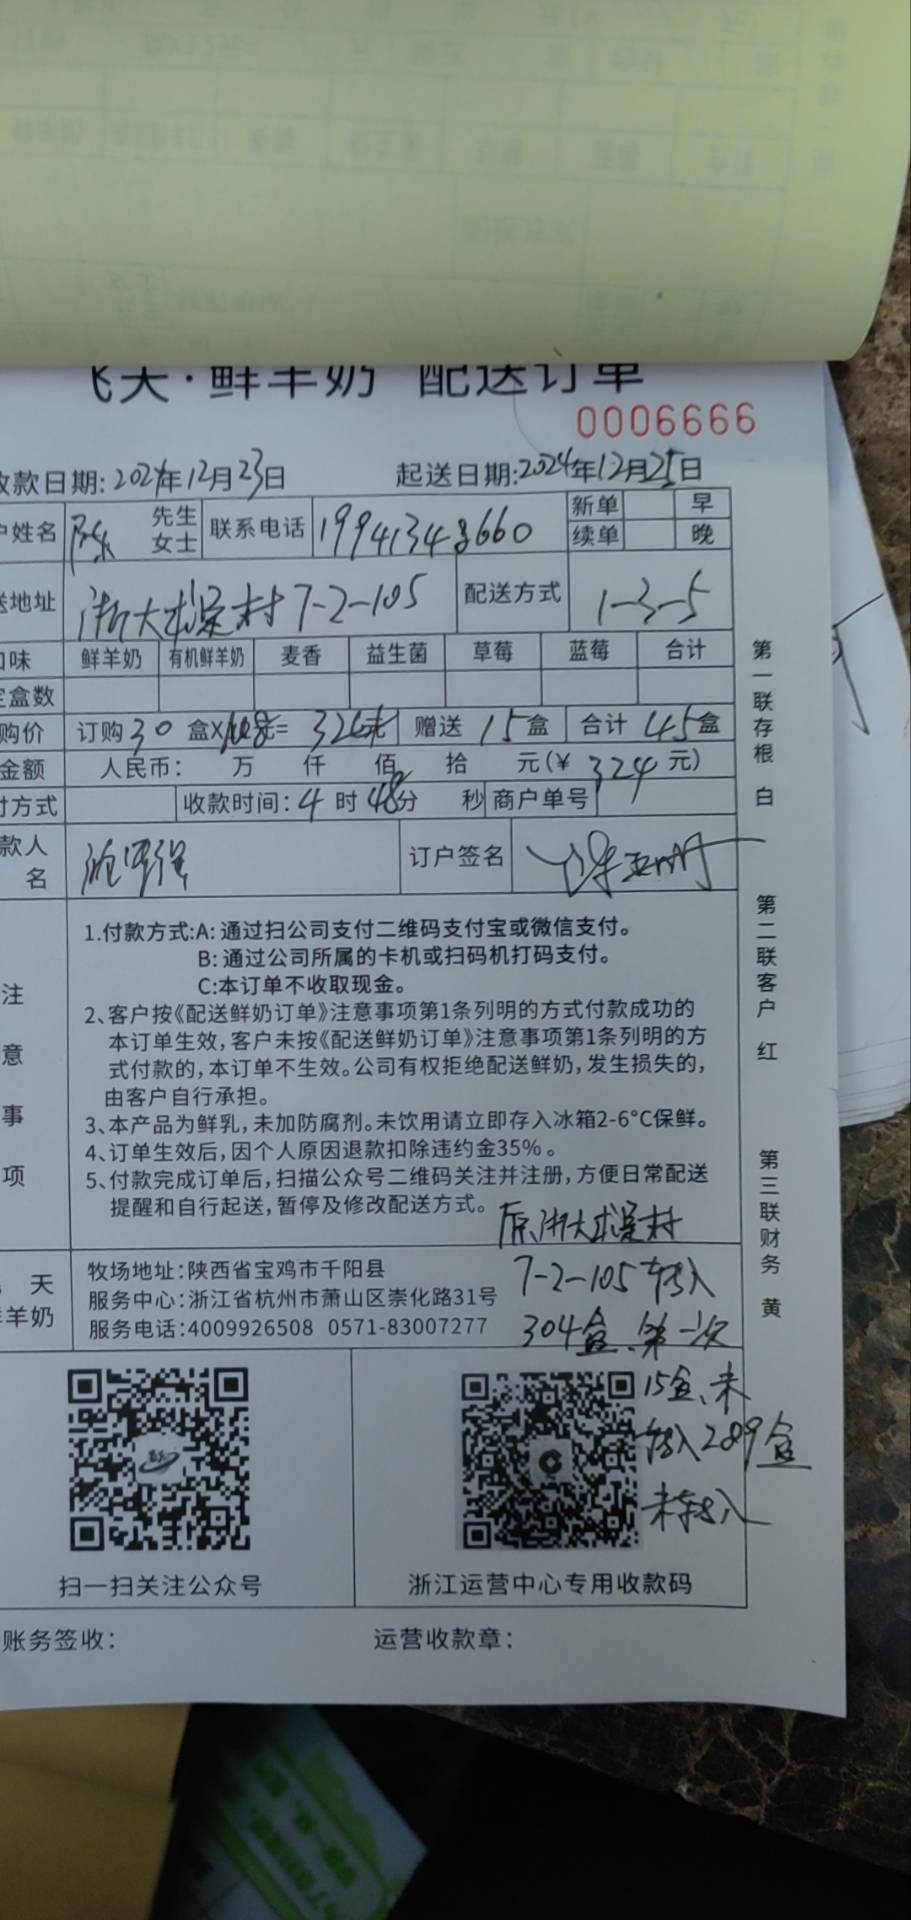 飞天·鲜羊奶 配送订单
0006666
收款日期:2024年12月23日 起送日期:2024年12月25日
户姓名 陈 先生 女士 联系电话 19941348660 新单 早
续单 晚
送地址 浙大求是村7-2-105 配送方式 1-3-5
口味 鲜羊奶 有机鲜羊奶 麦香 益生菌 草莓 蓝莓 合计
定盒数
购价 订购30盒×10.8元=324元 赠送15盒 合计45盒
金额 人民币: 万 仟 佰 拾 元(¥324元)
付方式 收款时间:4时48分 秒 商户单号
款人名 订户签名
注意事项
1.付款方式:A:通过扫公司支付二维码支付宝或微信支付。
B:通过公司所属的卡机或扫码机打码支付。
C:本订单不收取现金。
2、客户按《配送鲜奶订单》注意事项第1条列明的方式付款成功的
本订单生效,客户未按《配送鲜奶订单》注意事项第1条列明的方
式付款的,本订单不生效。公司有权拒绝配送鲜奶,发生损失的,
由客户自行承担。
3、本产品为鲜乳,未加防腐剂。未饮用请立即存入冰箱2-6°C保鲜。
4、订单生效后,因个人原因退款扣除违约金35%。
5、付款完成订单后,扫描公众号二维码关注并注册,方便日常配送
提醒和自行起送,暂停及修改配送方式。
原浙大求是村
7-2-105转入
304盒、第一次
15盒、未
转入289盒
未转入
天
羊奶
牧场地址:陕西省宝鸡市千阳县
服务中心:浙江省杭州市萧山区崇化路31号
服务电话:4009926508 0571-83007277
扫一扫关注公众号 浙江运营中心专用收款码
账务签收: 运营收款章:
第一联存根 白
第二联客户 红
第三联财务 黄